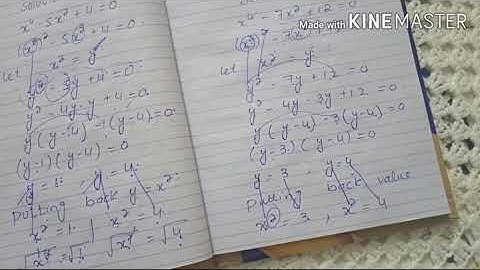 x⁴ - 5x² + 4 = 0.
(x²)² - 5x² + 4 = 0.
let x² = y
y² - 5y + 4 = 0.
y² - 4y - y + 4 = 0.
y(y-4) -1(y-4)=0.
(y-1)(y-4)=0.
y = 1. , y = 4.
putting back y = x².
x² = 1. , x² = 4.
√x² = √1. √x² = √4.
Made with KINEMASTER
x⁴ - 7x² + 12 = 0
(x²)² - 7x²
let x² = y.
y² - 7y + 12 = 0
y² - 4y - 3y + 12 = 0
y(y-4) -3(y-4)=0
(y-3)(y-4)=0
y = 3 , y = 4
putting back value
x² = 3 , x² = 4